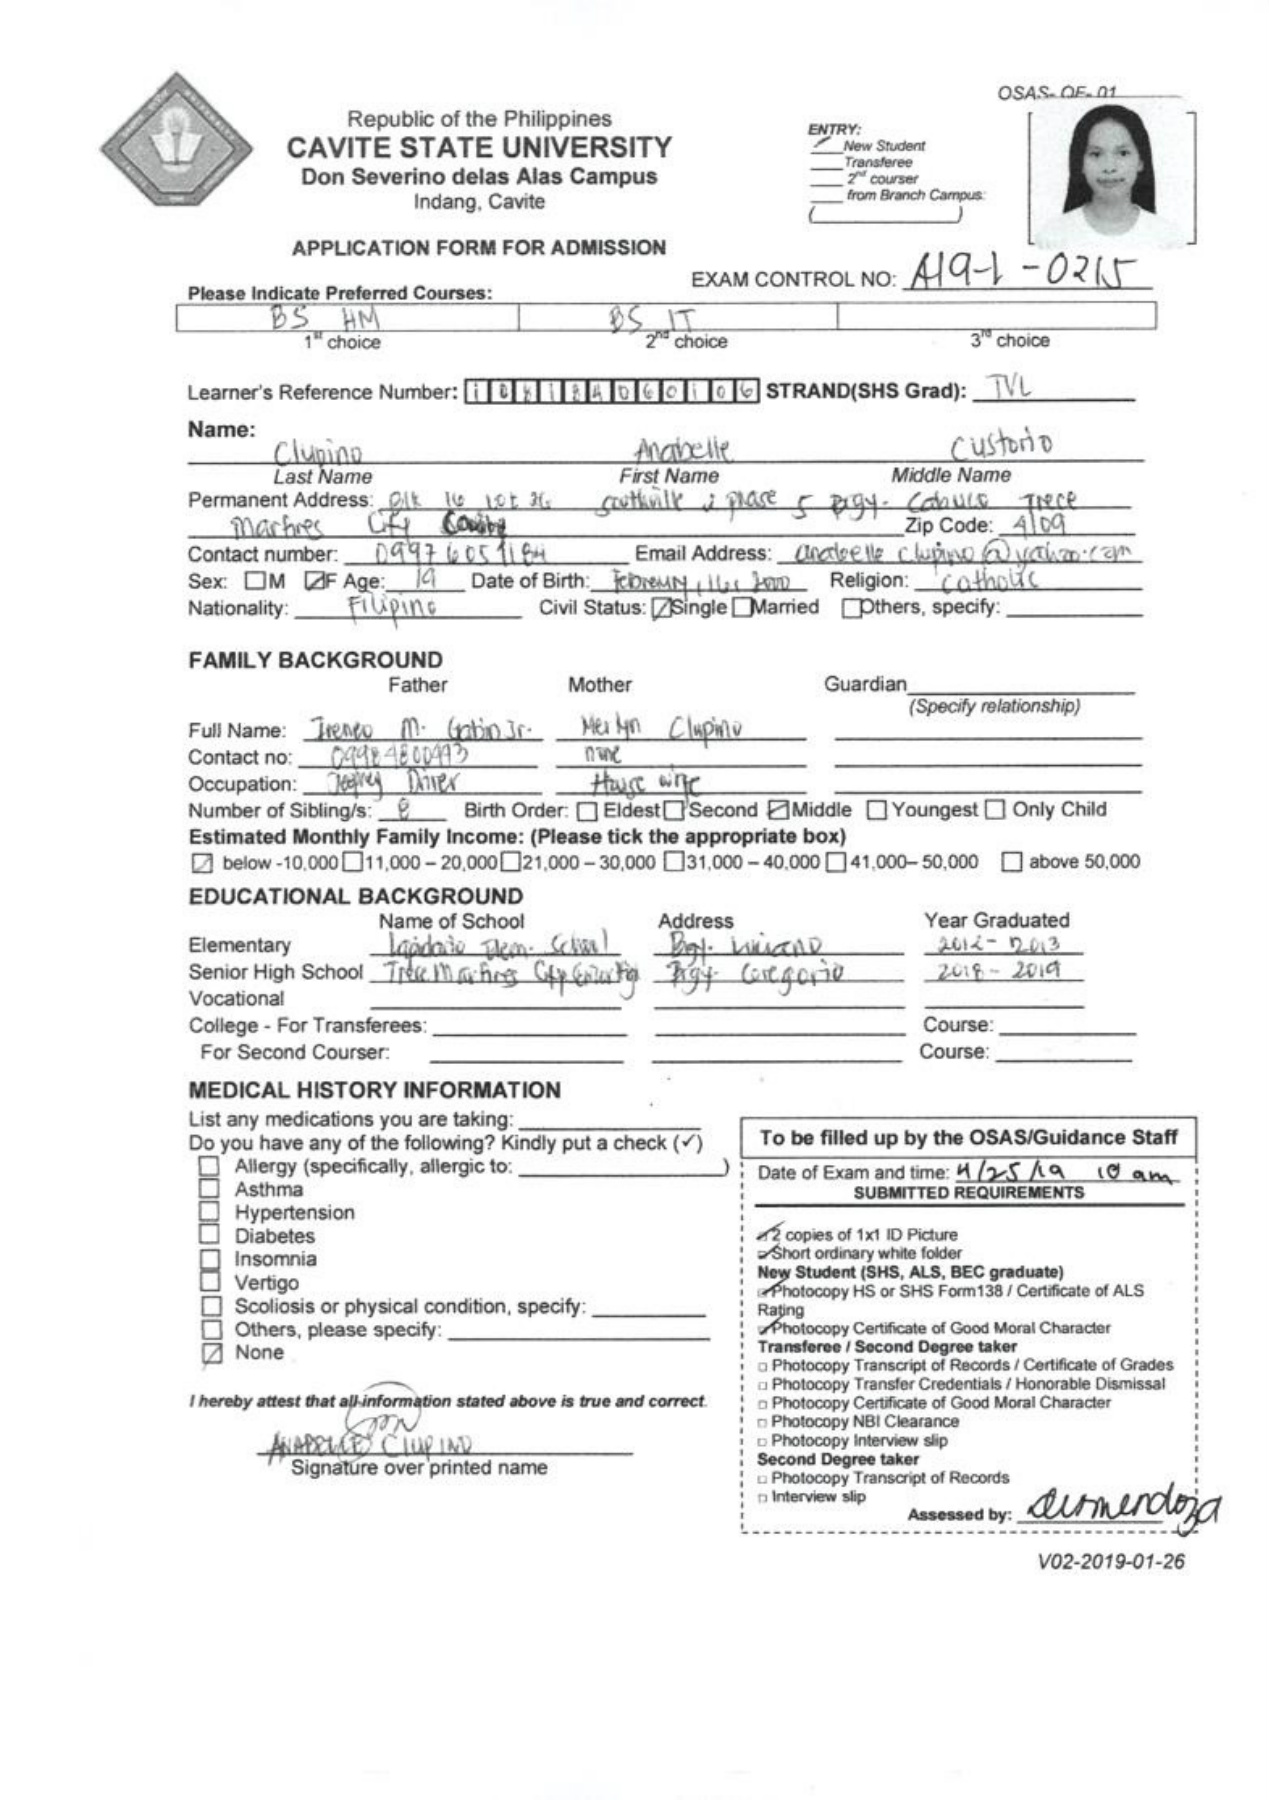 OSAS- OF- 01
Republic of the Philippines
CAVITE STATE UNIVERSITY
Don Severino delas Alas Campus
Indang, Cavite
ENTRY:
New Student
Transferee
2nd courser
from Branch Campus:
( )
APPLICATION FORM FOR ADMISSION
EXAM CONTROL NO: A19-1-0215
Please Indicate Preferred Courses:
BS HM BS IT
1st choice 2nd choice 3rd choice
Learner's Reference Number: STRAND(SHS Grad): TVL
Name:
Clupino Anabelle Custorio
Last Name First Name Middle Name
Permanent Address: Blk 16 lot 26 Southville 2 phase 5 Brgy. Trece
Martires City Cavite Zip Code: 4109
Contact number: Email Address: anabelle clupino@yahoo.com
Sex: M F Age: 19 Date of Birth: February, 16, 2000 Religion: Catholic
Nationality: Filipino Civil Status: Single Married Others, specify:
FAMILY BACKGROUND
Father Mother Guardian
(Specify relationship)
Full Name: Ireneo M. Jr. Merlyn Clupino
Contact no: 09984800493 none
Occupation: Driver House wife
Number of Sibling/s: 8 Birth Order: Eldest Second Middle Youngest Only Child
Estimated Monthly Family Income: (Please tick the appropriate box)
below -10,000 11,000 – 20,000 21,000 – 30,000 31,000 – 40,000 41,000– 50,000 above 50,000
EDUCATIONAL BACKGROUND
Name of School Address Year Graduated
Elementary Lapidario Elem. School Bgy. Luciano 2012- 2013
Senior High School Trece Martires City Brgy. Gregorio 2018 - 2019
Vocational
College - For Transferees: Course:
For Second Courser: Course:
MEDICAL HISTORY INFORMATION
List any medications you are taking:
Do you have any of the following? Kindly put a check (✓)
Allergy (specifically, allergic to: )
Asthma
Hypertension
Diabetes
Insomnia
Vertigo
Scoliosis or physical condition, specify:
Others, please specify:
None
I hereby attest that all information stated above is true and correct.
ANABELLE CLUPINO
Signature over printed name
To be filled up by the OSAS/Guidance Staff
Date of Exam and time: 4/25/19 10 am
SUBMITTED REQUIREMENTS
2 copies of 1x1 ID Picture
Short ordinary white folder
New Student (SHS, ALS, BEC graduate)
Photocopy HS or SHS Form138 / Certificate of ALS
Rating
Photocopy Certificate of Good Moral Character
Transferee / Second Degree taker
Photocopy Transcript of Records / Certificate of Grades
Photocopy Transfer Credentials / Honorable Dismissal
Photocopy Certificate of Good Moral Character
Photocopy NBI Clearance
Photocopy Interview slip
Second Degree taker
Photocopy Transcript of Records
Interview slip
Assessed by:
V02-2019-01-26